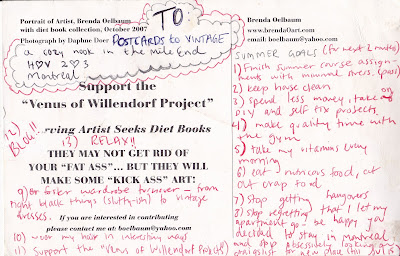 Portrait of Artist, Brenda Oelbaum
with diet book collection, October 2007
Photograph by Daphne Doer
TO
POSTCARDS to VINTAGE
a cozy nook in the Mile End
H♡V 2♡3
Montreal
Support the
"Venus of Willendorf Project"
Artist Seeks Diet Books
THEY MAY NOT GET RID OF
YOUR "FAT ASS"... BUT THEY WILL
MAKE SOME "KICK ASS" ART!
If you are interested in contributing
please contact me at: boelbaum@yahoo.com
Brenda Oelbaum
www.brendaOart.com
email: boelbaum@yahoo.com
SUMMER GOALS (for next 2 months)
1) Finish summer course assign-
ments with minimal stress. (pass)
2) keep house clean
3) spend less money, take on
DIY and self fix projects
4) make quality time with
the gym
5) take my vitamins every
morning
6) eat nutritious food, cut
out crap food
7) stop getting hangovers
8) stop regretting that I let my
apartment go - be happy you
decided to stay in montreal
and stop obsessively looking on
craigslist for new places
9) wardrobe from
tight black things (sluth-ish) to vintage
dresses.
10) wear my hair in interesting ways
11) Support the "Venus of Willendorf Project"
12) BLOG!!
13) RELAX!!